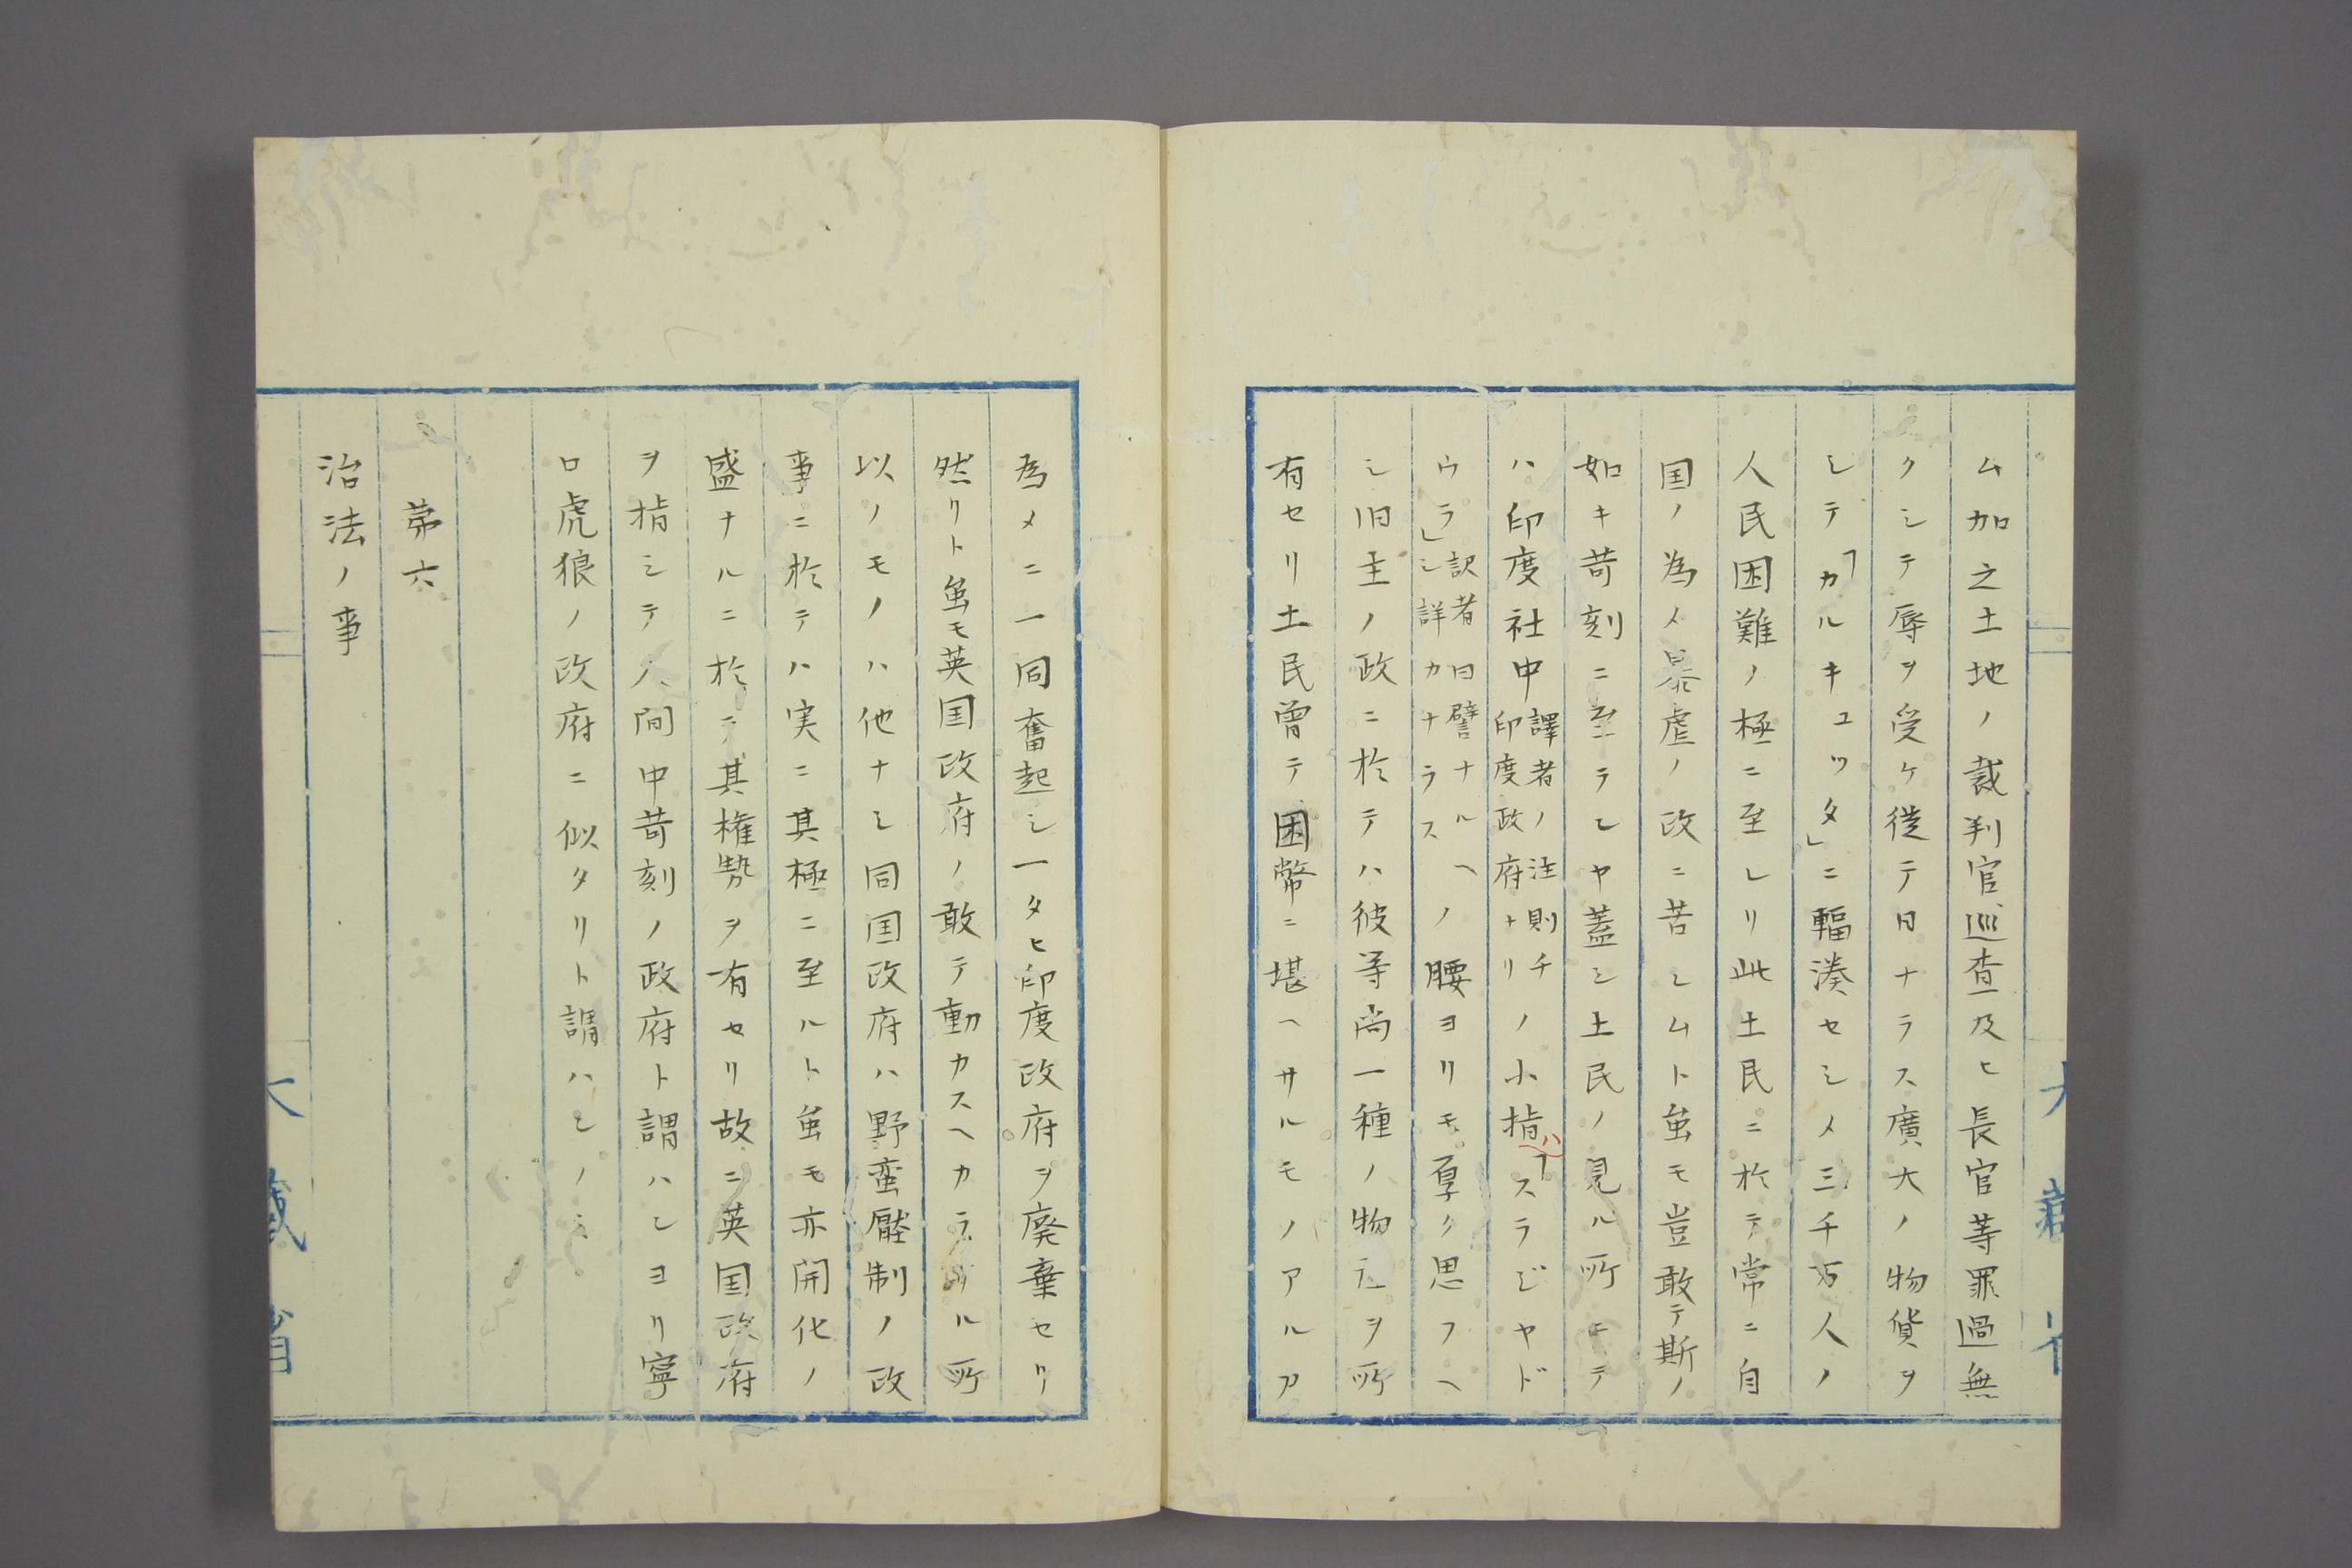 ム加之土地ノ裁判官巡査及ヒ長官等罪過無
クシテ辱ヲ受ケ従テ日ナラス廣大ノ物貨ヲ
シテ「カルキユツタ」ニ輻湊セシメ三千万人ノ
人民困難ノ極ニ至レリ此土民ニ於テ常ニ自
国ノ為メ暴虐ノ政ニ苦シムト虽モ豈敢テ斯ノ
如キ苛刻ニ至ラシヤ蓋シ土民ノ見ル所ニテ
ハ印度社中譯者ノ注則チ印度政府ナリノ小指ハ「スラジヤド
ウラ」訳者曰譬ナルヘシ詳カナラスノ腰ヨリモ厚ク思フヘ
シ旧主ノ政ニ於テハ彼等尚一種ノ物ヲ所
有セリ土民曽テ困弊ニ堪ヘサルモノアルア
為メニ一同奮起シ一タヒ印度政府ヲ廃棄セリ
然リト虽モ英国政府ノ敢テ動カスヘカラサル所
以ノモノハ他ナシ同国政府ハ野蛮壓制ノ政
事ニ於テハ実ニ其極ニ至ルト虽モ亦開化ノ
盛ナルニ於テ其権勢ヲ有セリ故ニ英国政府
ヲ指シテ人間中苛刻ノ政府ト謂ハンヨリ寧
ロ虎狼ノ政府ニ似タリト謂ハンノミ
第六
治法ノ事
大藏省
大藏省